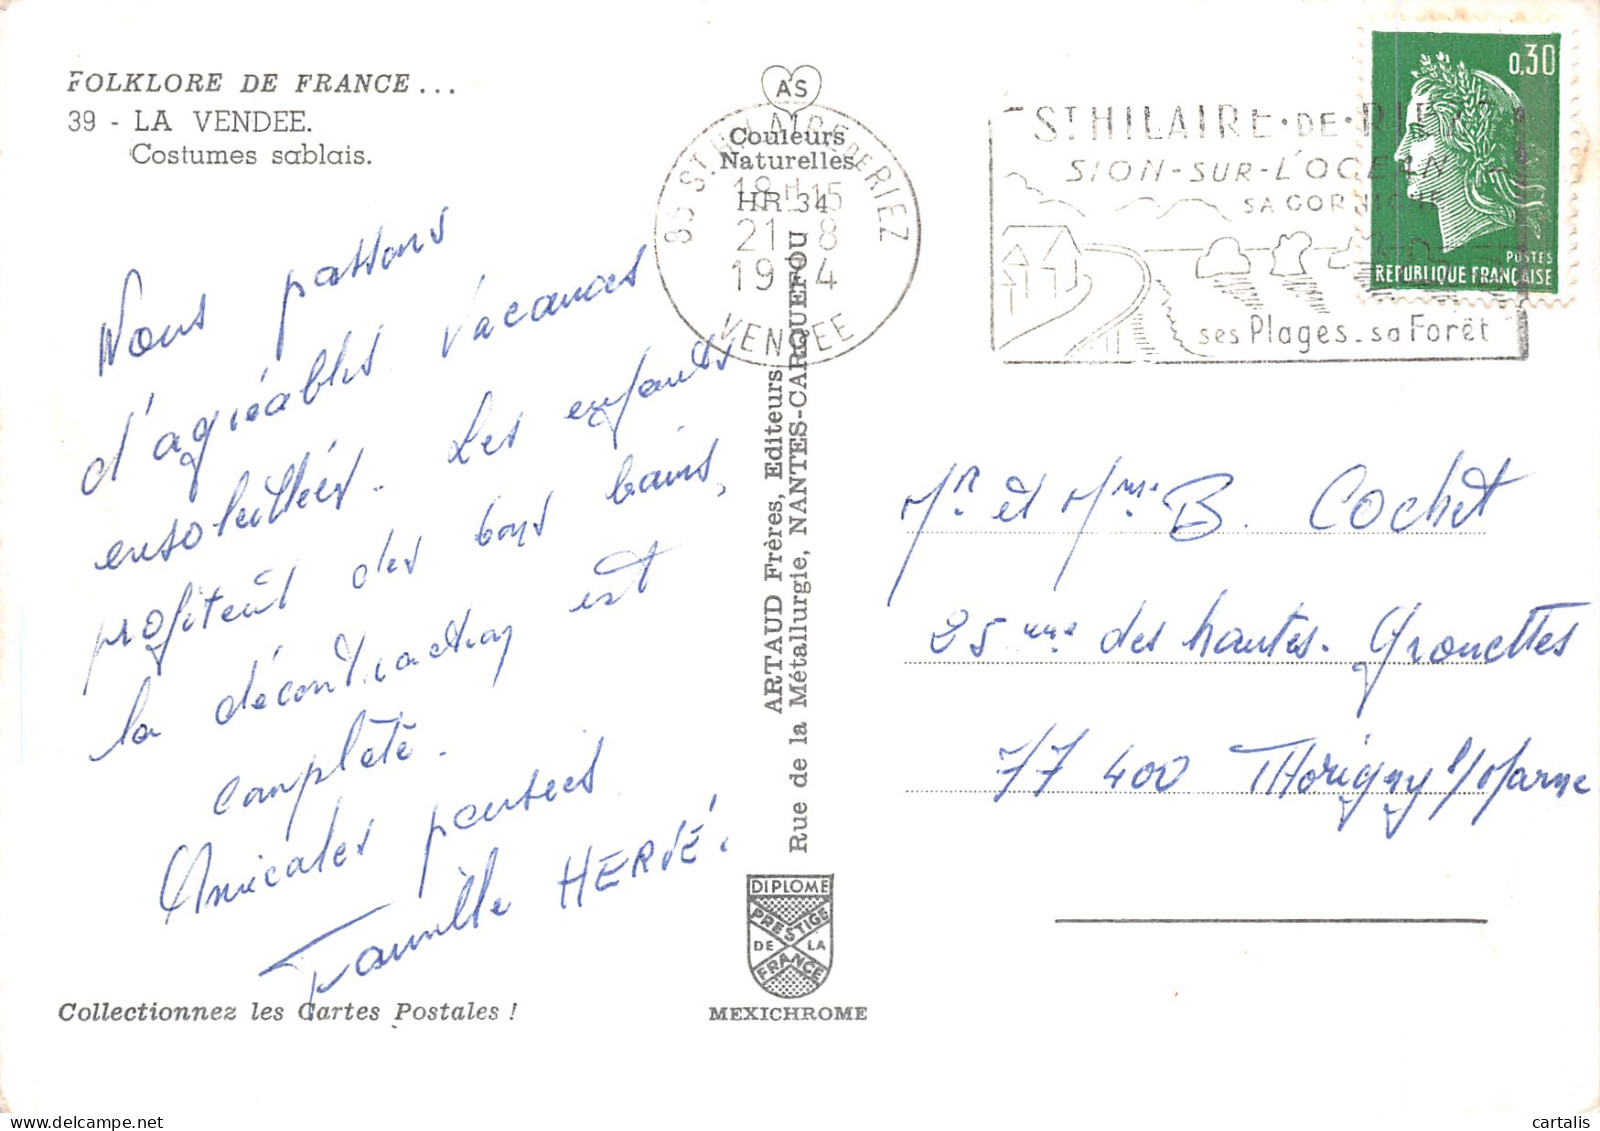 FOLKLORE DE FRANCE...
39 - LA VENDEE.
Costumes sablais.
Nous passons
d'agréables vacances
ensoleillées. Les enfants
profitent des bons bains,
la décontraction est
complète.
Amicales pensées
Famille HERVÉ.
Collectionnez les Cartes Postales !
AS
Couleurs
Naturelles
HR 34
85 ST HILAIRE DE RIEZ
18H15
21-8
1974
VENDEE
ARTAUD Frères, Editeurs
Rue de la Métallurgie, NANTES-CARQUEFOU
DIPLOME
PRESTIGE
DE LA
FRANCE
MEXICHROME
ST HILAIRE·DE·RIEZ
SION-SUR-L'OCEAN
SA CORNICHE
ses Plages_sa Forêt
0,30
POSTES
REPUBLIQUE FRANÇAISE
Mr et Mme B. Cochet
25 des hautes. Grouettes
77 400 Thorigny s/Marne
cartalis